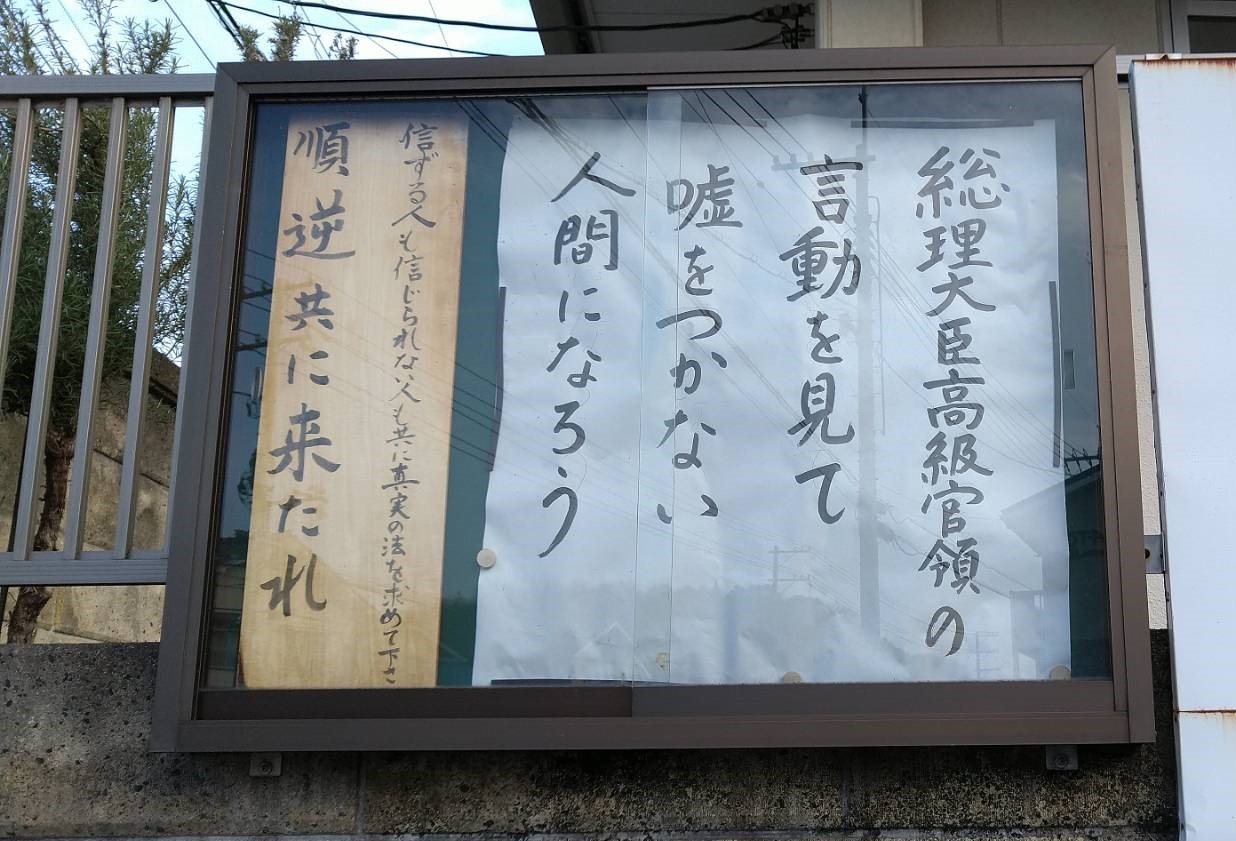 総理大臣高級官領の
言動を見て
嘘をつかない
人間になろう
信ずる人も信じられない人も共に真実の法を求めて下さ
順逆共に来たれ